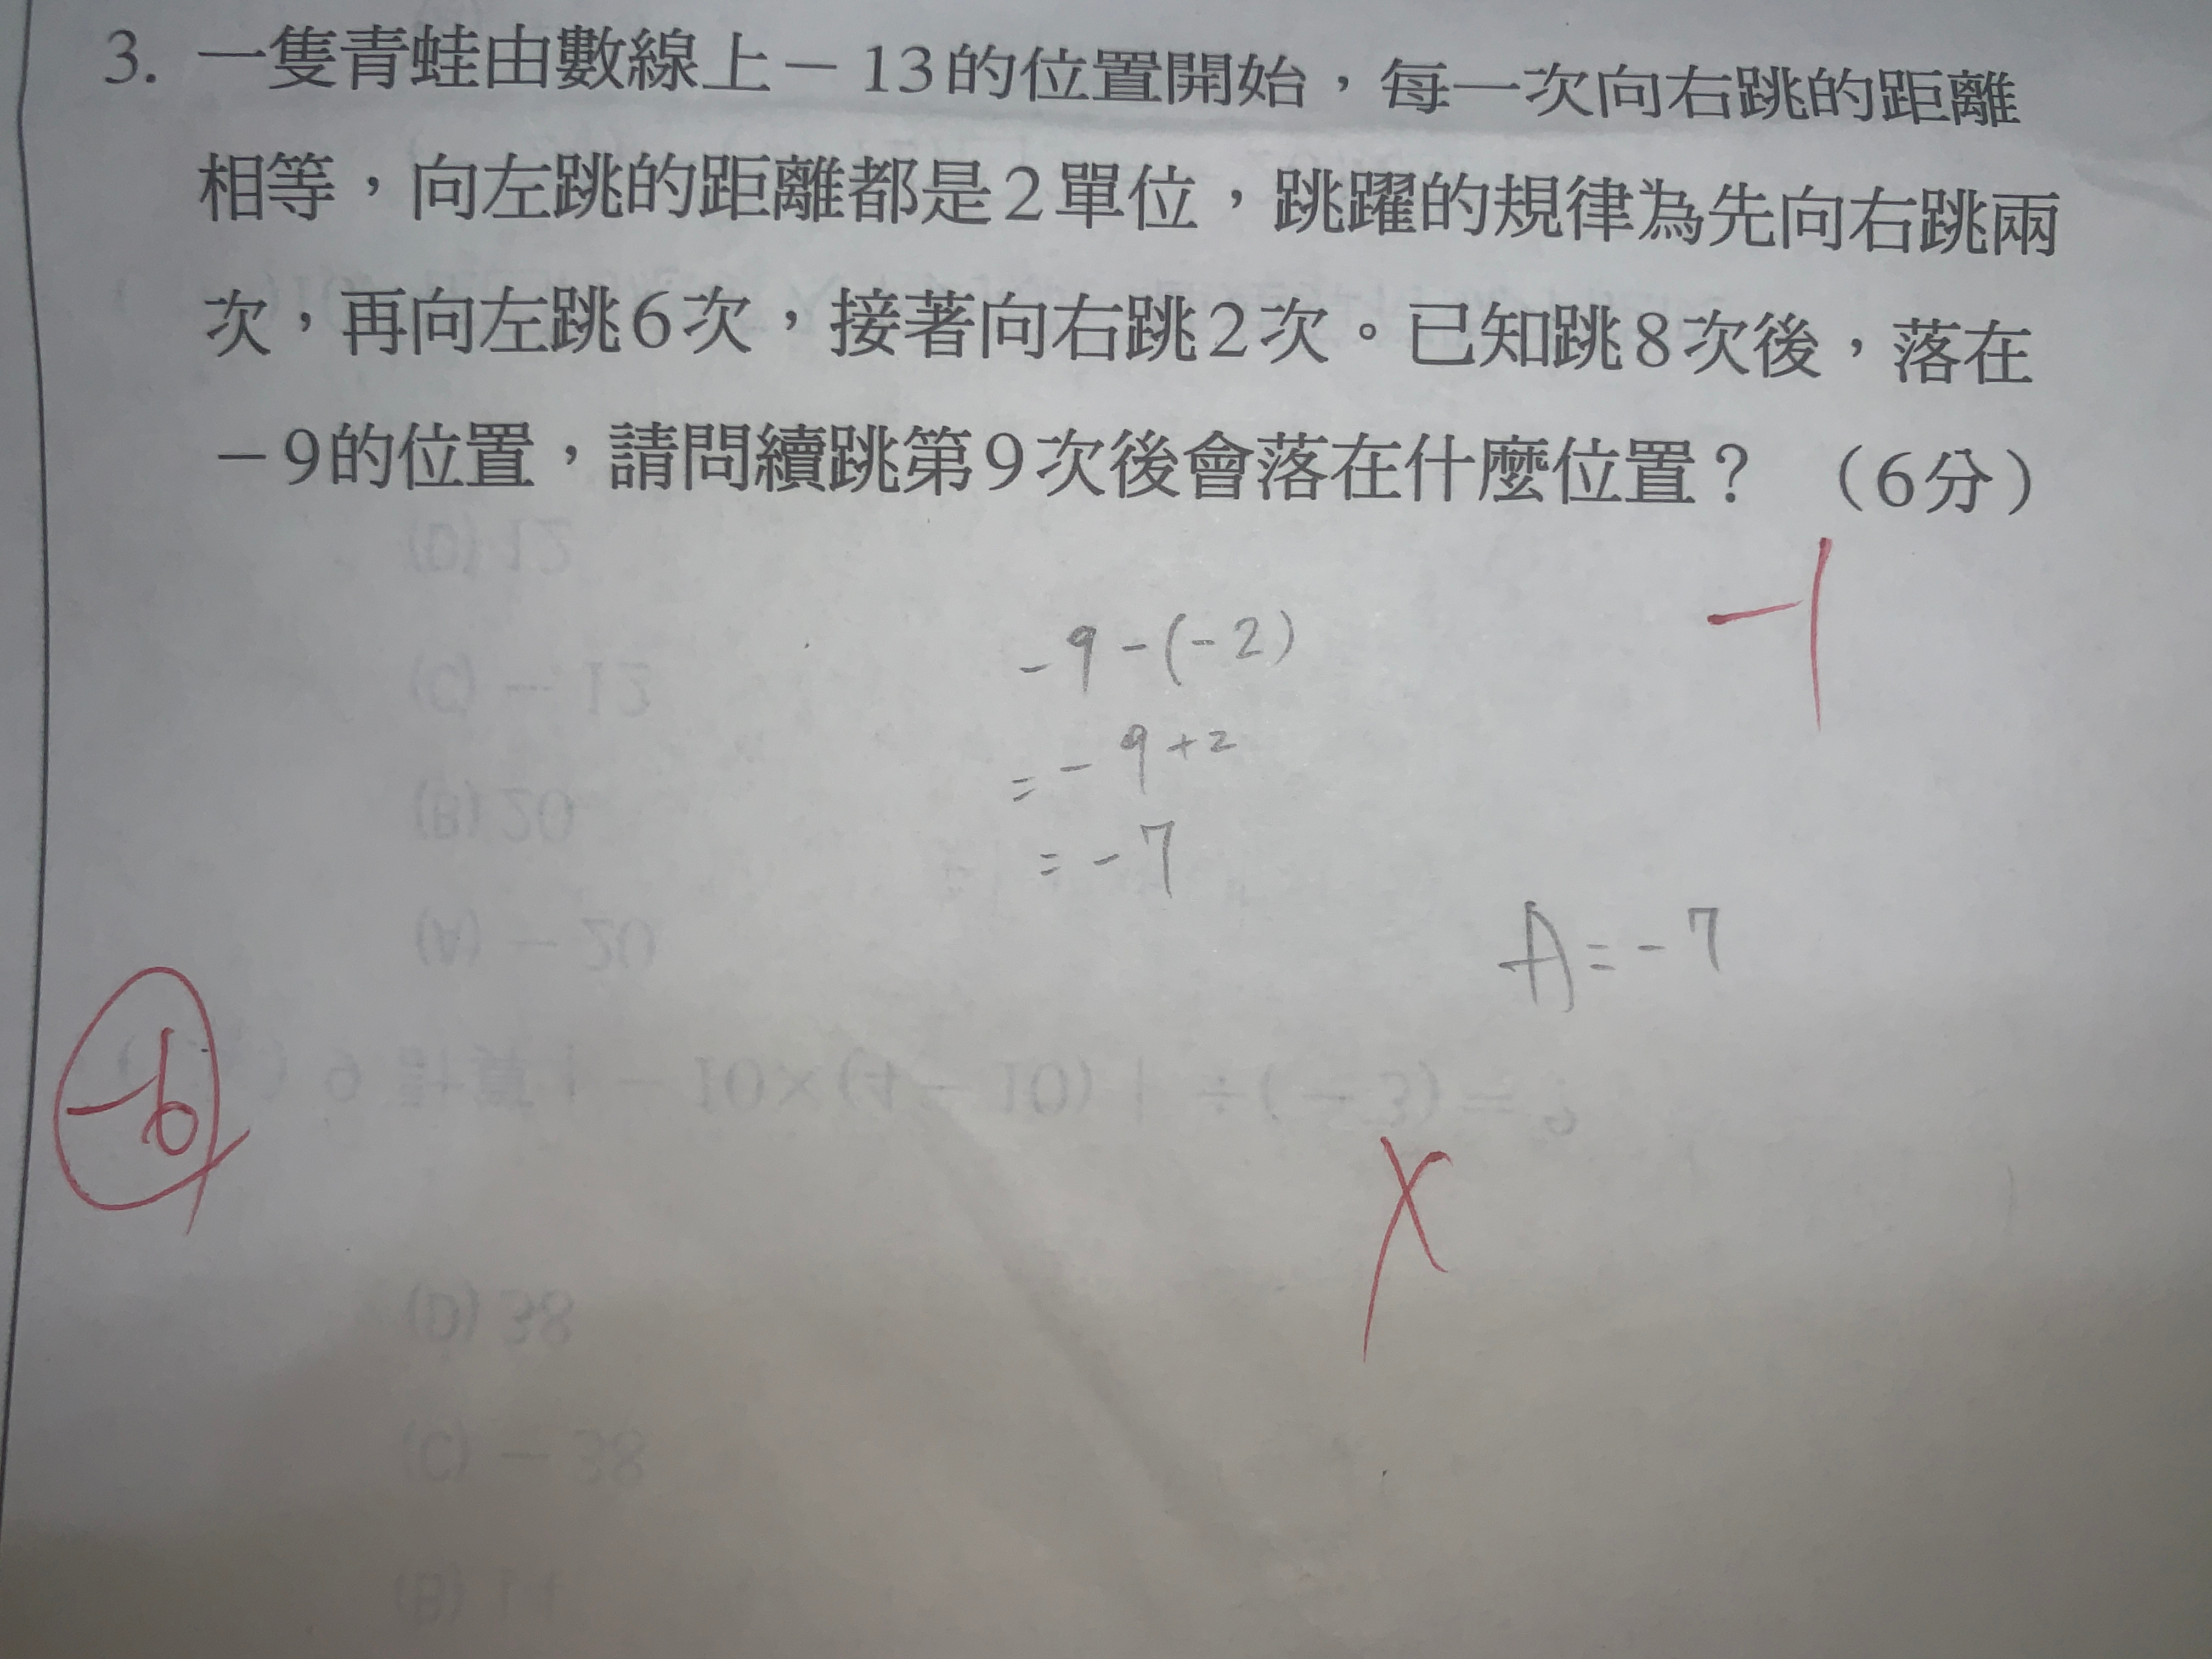 3. 一隻青蛙由數線上－13的位置開始，每一次向右跳的距離
相等，向左跳的距離都是2單位，跳躍的規律為先向右跳兩
次，再向左跳6次，接著向右跳2次。已知跳8次後，落在
－9的位置，請問續跳第9次後會落在什麼位置？（6分）
-1
-9-(-2)
=-9+2
=-7
A=-7
-6
9 計算|－10×(4－10)|÷(－3)=?
(A)－20
(B) 20
(C)－12
(D) 12
(C)－38
(D) 38